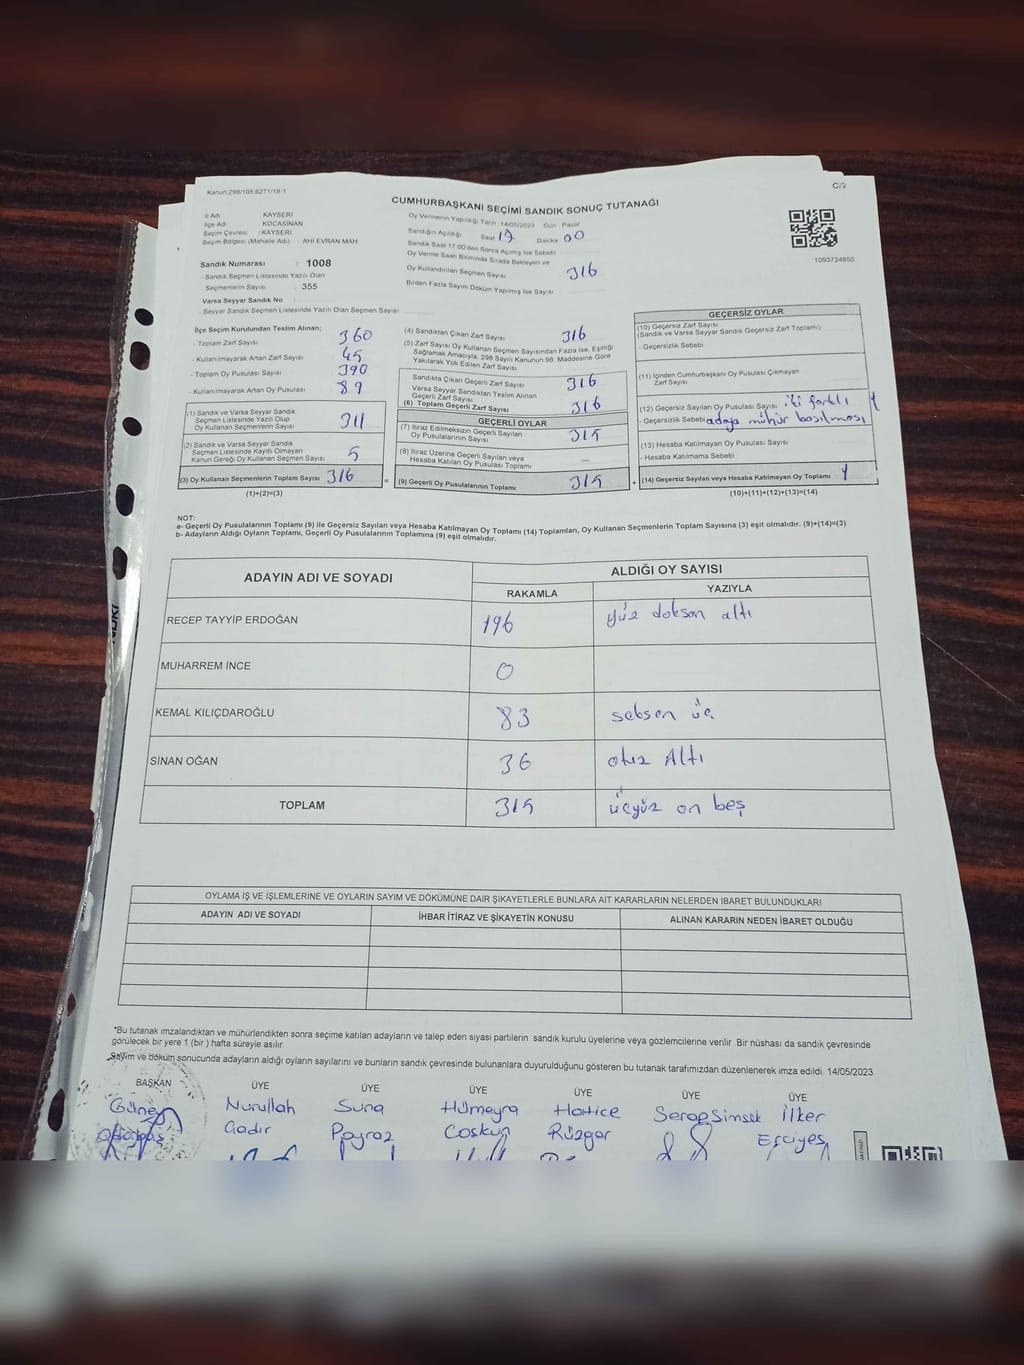 Kanun:298/105 6271/18-1
C/2
CUMHURBAŞKANI SEÇİMİ SANDIK SONUÇ TUTANAĞI
İl Adı : KAYSERİ
İlçe Adı : KOCASİNAN
Seçim Çevresi : KAYSERİ
Seçim Bölgesi (Mahalle Adı) : AHİ EVRAN MAH.
Sandık Numarası : 1008
- Sandık Seçmen Listesinde Yazılı Olan
Seçmenlerin Sayısı : 355
Varsa Seyyar Sandık No :
- Seyyar Sandık Seçmen Listesinde Yazılı Olan Seçmen Sayısı :
Oy Vermenin Yapıldığı Tarih : 14/05/2023 Gün : Pazar
Sandığın Açıldığı Saat 17 Dakika 00
Sandık Saat 17.00'den Sonra Açılmış İse Sebebi
Oy Verme Saati Bitiminde Sırada Bekleyen ve
Oy Kullandırılan Seçmen Sayısı 316
Birden Fazla Sayım Döküm Yapılmış İse Sayısı
1093724850
İlçe Seçim Kurulundan Teslim Alınan;
- Toplam Zarf Sayısı 360
- Kullanılmayarak Artan Zarf Sayısı 45
- Toplam Oy Pusulası Sayısı 390
- Kullanılmayarak Artan Oy Pusulası 89
(1) Sandık ve Varsa Seyyar Sandık
Seçmen Listesinde Yazılı Olup
Oy Kullanan Seçmenlerin Sayısı 311
(2) Sandık ve Varsa Seyyar Sandık
Seçmen Listesinde Kayıtlı Olmayan
Kanun Gereği Oy Kullanan Seçmen Sayısı 5
(3) Oy Kullanan Seçmenlerin Toplam Sayısı 316
(1)+(2)=(3)
(4) Sandıktan Çıkan Zarf Sayısı 316
(5) Zarf Sayısı Oy Kullanan Seçmen Sayısından Fazla İse, Eşitliği
Sağlamak Amacıyla, 298 Sayılı Kanunun 98. Maddesine Göre
Yakılarak Yok Edilen Zarf Sayısı
Sandıkta Çıkan Geçerli Zarf Sayısı 316
Varsa Seyyar Sandıktan Teslim Alınan
Geçerli Zarf Sayısı
(6) Toplam Geçerli Zarf Sayısı 316
GEÇERLİ OYLAR
(7) İtiraz Edilmeksizin Geçerli Sayılan
Oy Pusulalarının Sayısı 315
(8) İtiraz Üzerine Geçerli Sayılan veya
Hesaba Katılan Oy Pusulası Toplamı –
= (9) Geçerli Oy Pusulalarının Toplamı 315 +
GEÇERSİZ OYLAR
(10) Geçersiz Zarf Sayısı
(Sandık ve Varsa Seyyar Sandık Geçersiz Zarf Toplamı)
- Geçersizlik Sebebi
(11) İçinden Cumhurbaşkanı Oy Pusulası Çıkmayan
Zarf Sayısı
(12) Geçersiz Sayılan Oy Pusulası Sayısı iki farklı 1
- Geçersizlik Sebebi adaya mühür basılması
(13) Hesaba Katılmayan Oy Pusulası Sayısı
- Hesaba Katılmama Sebebi
(14) Geçersiz Sayılan veya Hesaba Katılmayan Oy Toplamı 1
(10)+(11)+(12)+(13)=(14)
NOT:
a- Geçerli Oy Pusulalarının Toplamı (9) ile Geçersiz Sayılan veya Hesaba Katılmayan Oy Toplamı (14) Toplamları, Oy Kullanan Seçmenlerin Toplam Sayısına (3) eşit olmalıdır. (9)+(14)=(3)
b- Adayların Aldığı Oyların Toplamı, Geçerli Oy Pusulalarının Toplamına (9) eşit olmalıdır.
ADAYIN ADI VE SOYADI ALDIĞI OY SAYISI
RAKAMLA YAZIYLA
RECEP TAYYİP ERDOĞAN 196 yüz doksan altı
MUHARREM İNCE 0
KEMAL KILIÇDAROĞLU 83 seksen üç
SİNAN OĞAN 36 otuz Altı
TOPLAM 315 üçyüz on beş
OYLAMA İŞ VE İŞLEMLERİNE VE OYLARIN SAYIM VE DÖKÜMÜNE DAİR ŞİKAYETLERLE BUNLARA AİT KARARLARIN NELERDEN İBARET BULUNDUKLARI
ADAYIN ADI VE SOYADI İHBAR İTİRAZ VE ŞİKAYETİN KONUSU ALINAN KARARIN NEDEN İBARET OLDUĞU
*Bu tutanak imzalandıktan ve mühürlendikten sonra seçime katılan adayların ve talep eden siyasi partilerin sandık kurulu üyelerine veya gözlemcilerine verilir. Bir nüshası da sandık çevresinde
görülecek bir yere 1 (bir) hafta süreyle asılır.
Sayım ve döküm sonucunda adayların aldığı oyların sayılarını ve bunların sandık çevresinde bulunanlara duyurulduğunu gösteren bu tutanak tarafımızdan düzenlenerek imza edildi. 14/05/2023
BAŞKAN ÜYE ÜYE ÜYE ÜYE ÜYE ÜYE
Güney Nurullah Suna Hümeyra Hatice Serap Şimşek İlker
Gadir Poyraz Coşkun Rüzgar Erciyes